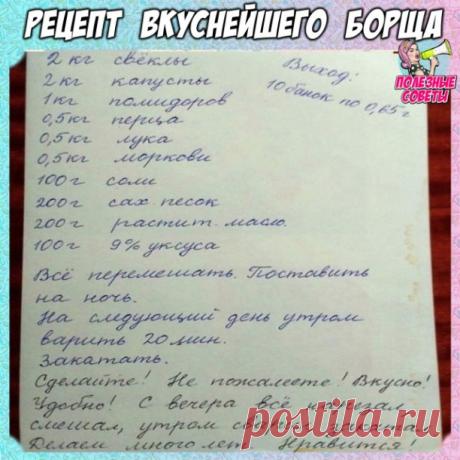 РЕЦЕПТ ВКУСНЕЙШЕГО БОРЩА
ПОЛЕЗНЫЕ
СОВЕТЫ
2 кг свёклы
2 кг капусты
1 кг помидоров
0,5 кг перца
0,5 кг лука
0,5 кг моркови
100 г соли
200 г сах. песок
200 г растит. масло.
100 г 9% уксуса
Выход:
10 банок по 0,65 г
Всё перемешать. Поставить
на ночь.
На следующий день утром
варить 20 мин.
Закатать.
Сделайте! Не пожалеете! Вкусно!
Удобно! С вечера всё нарезал,
смешал, утром
Делаем много лет. Нравится!
postila.ru